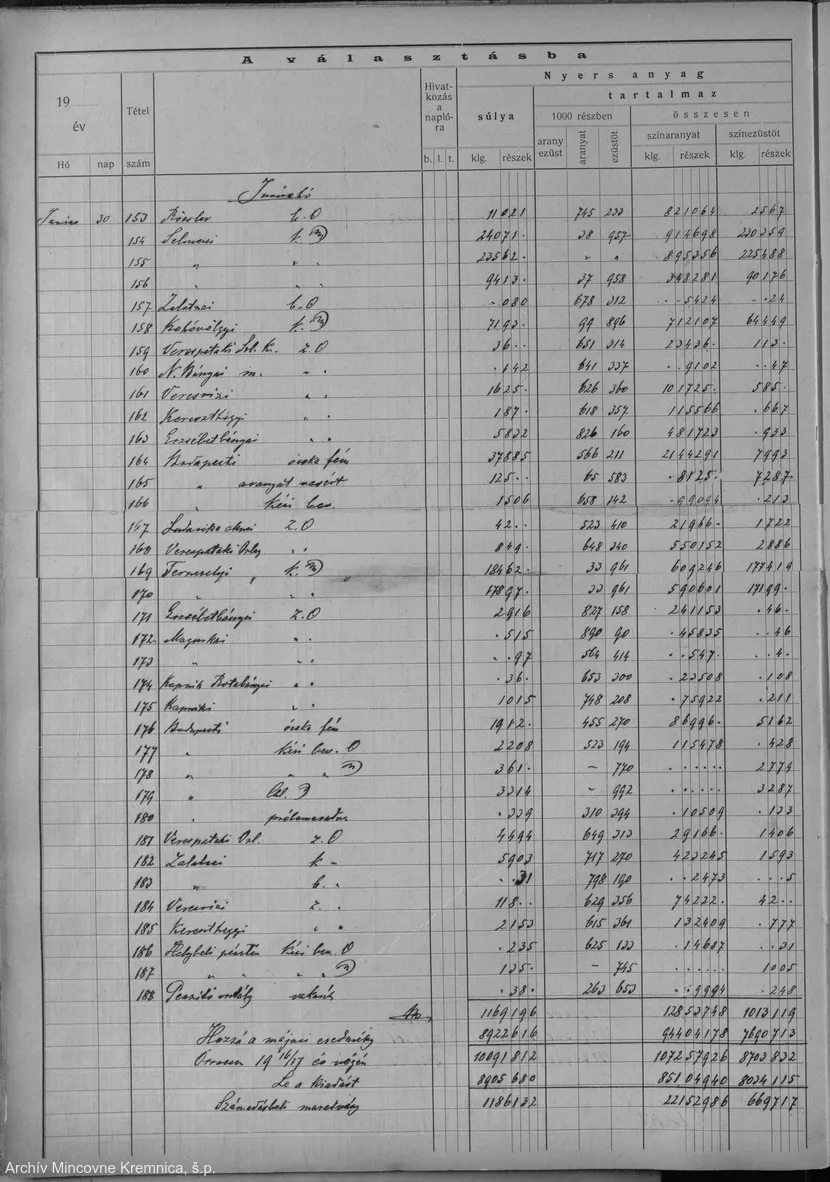 A választásba
Nyers anyag
tartalmaz
19 év
Tétel szám
Hivatkozás a naplóra
súlya
1000 részben
összesen
arany ezüst
aranyat
ezüstöt
színaranyat
színezüstöt
Hó nap
b. l. t.
klg. részek klg. részek klg. részek
Junius 30 153 b. O 11021 745 233 821064 2567
154 Selmeci k. 24071 · 38 957 914698 230359
155 " " 23562 · " " 895356 225488
156 " " 9413 · 37 958 348281 90176
157 Zalatnai b. O · 080 678 312 · · 5424 · · 24
158 k. 7193 · 99 896 712107 64449
159 Z. O 36 · · 651 314 23436 · 113 ·
160 N. Bányai m. " " · 142 641 337 · 9102 · · 47
161 Veresvizi " " 1625 · 626 360 101725 · 585 ·
162 Kereszthegyi " " 187 · 618 357 115566 · 667
163 Erzsébetbányai " " 5832 826 160 481723 · 933
164 Budapesti ócska fém 37885 566 211 2144291 7993
165 " 125 · · 65 583 · 8125 · 7287 ·
166 " Kéri ben. 1506 658 142 · 99094 · 213
167 Z. O 42 · · 523 410 21966 · 1722
168 Verespataki " " 849 · 648 340 550152 2886
169 " k. " 18462 · 33 961 609246 177419
170 " " 17897 · 33 961 590601 17199 ·
171 Erzsébetbányai Z. O 2916 827 158 241153 · 46 ·
172 Magurkai " " · 515 890 90 · 45835 · · 46
173 " " " · · 97 564 414 · · 547 · · · 4 ·
174 Kapnik Rotabányai " " · 36 · 653 300 · 23508 · 108
175 Kapniki " " 1015 748 208 · 75922 · 211
176 Budapesti ócska fém 1912 · 455 270 86996 · 5162
177 " Kéri ben. O 2208 523 194 115478 · 428
178 " " " 361 · – 770 · · · · · · 2779
179 " 3314 – 992 · · · · · · 3287
180 " próbamaradv. · 339 310 394 · 10509 · 133
181 Verespataki Orl. Z. O 4494 649 313 29166 · 1406
182 Zalatnai k " 5903 717 270 423245 1593
183 " b. " · · 31 798 190 · · 2473 · · · 5
184 Veresvizi Z. " 118 · · 629 356 74222 · 42 · ·
185 Kereszthegyi " " 2153 615 361 132409 · 777
186 Helybeli pénztár Kéri ben. O · 235 625 133 · 14687 · · 31
187 " " " " 135 · – 745 · · · · · · 1005
188 · 38 · 263 653 · · 9994 · 248
1169196 12853748 1013119
Hozzá a májusi eredmény 8922616 94404178 7690713
Összesen 1916/17 év végén 10091812 107257926 8703832
Le a kiadást 8905680 85104940 8034115
Számadásbeli maradvány 1186132 22152986 669717
Archív Mincovne Kremnica, š.p.